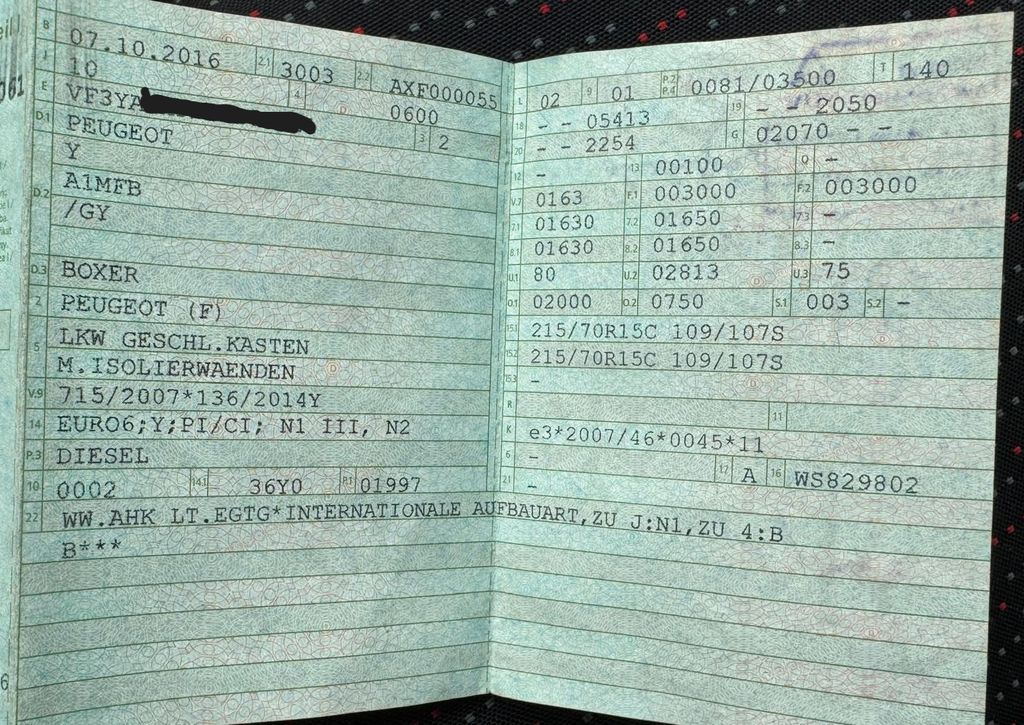 B 07.10.2016 2.1 3003 2.2 AXF000055
J 10 4 0600
E VF3YA 3 2
D.1 PEUGEOT
Y
D.2 A1MFB
/GY
D.3 BOXER
2 PEUGEOT (F)
5 LKW GESCHL.KASTEN
M.ISOLIERWAENDEN
V.9 715/2007*136/2014Y
14 EURO6;Y;PI/CI; N1 III, N2
P.3 DIESEL
10 0002 14.1 36Y0 P.1 01997
22 WW.AHK LT.EGTG*INTERNATIONALE AUFBAUART,ZU J:N1,ZU 4:B
B***
L 02 9 01 P.2/P.4 0081/03500 T 140
18 - - 05413 19 - - 2050
20 - - 2254 G 02070 - -
12 - 13 00100 Q -
V.7 0163 F.1 003000 F.2 003000
7.1 01630 7.2 01650 7.3 -
8.1 01630 8.2 01650 8.3 -
U.1 80 U.2 02813 U.3 75
O.1 02000 O.2 0750 S.1 003 S.2 -
15.1 215/70R15C 109/107S
15.2 215/70R15C 109/107S
15.3 -
R 11
K e3*2007/46*0045*11
6 - 17 A 16 WS829802
21 -